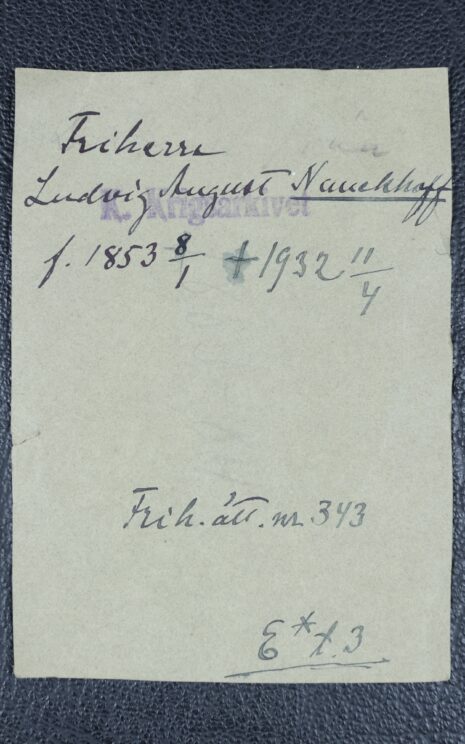 Friherre
Ludvig August Nauckhoff
K. Krigsarkivet
f. 1853 8/1 † 1932 11/4
Frih. ätt. nr. 343
E* t. 3